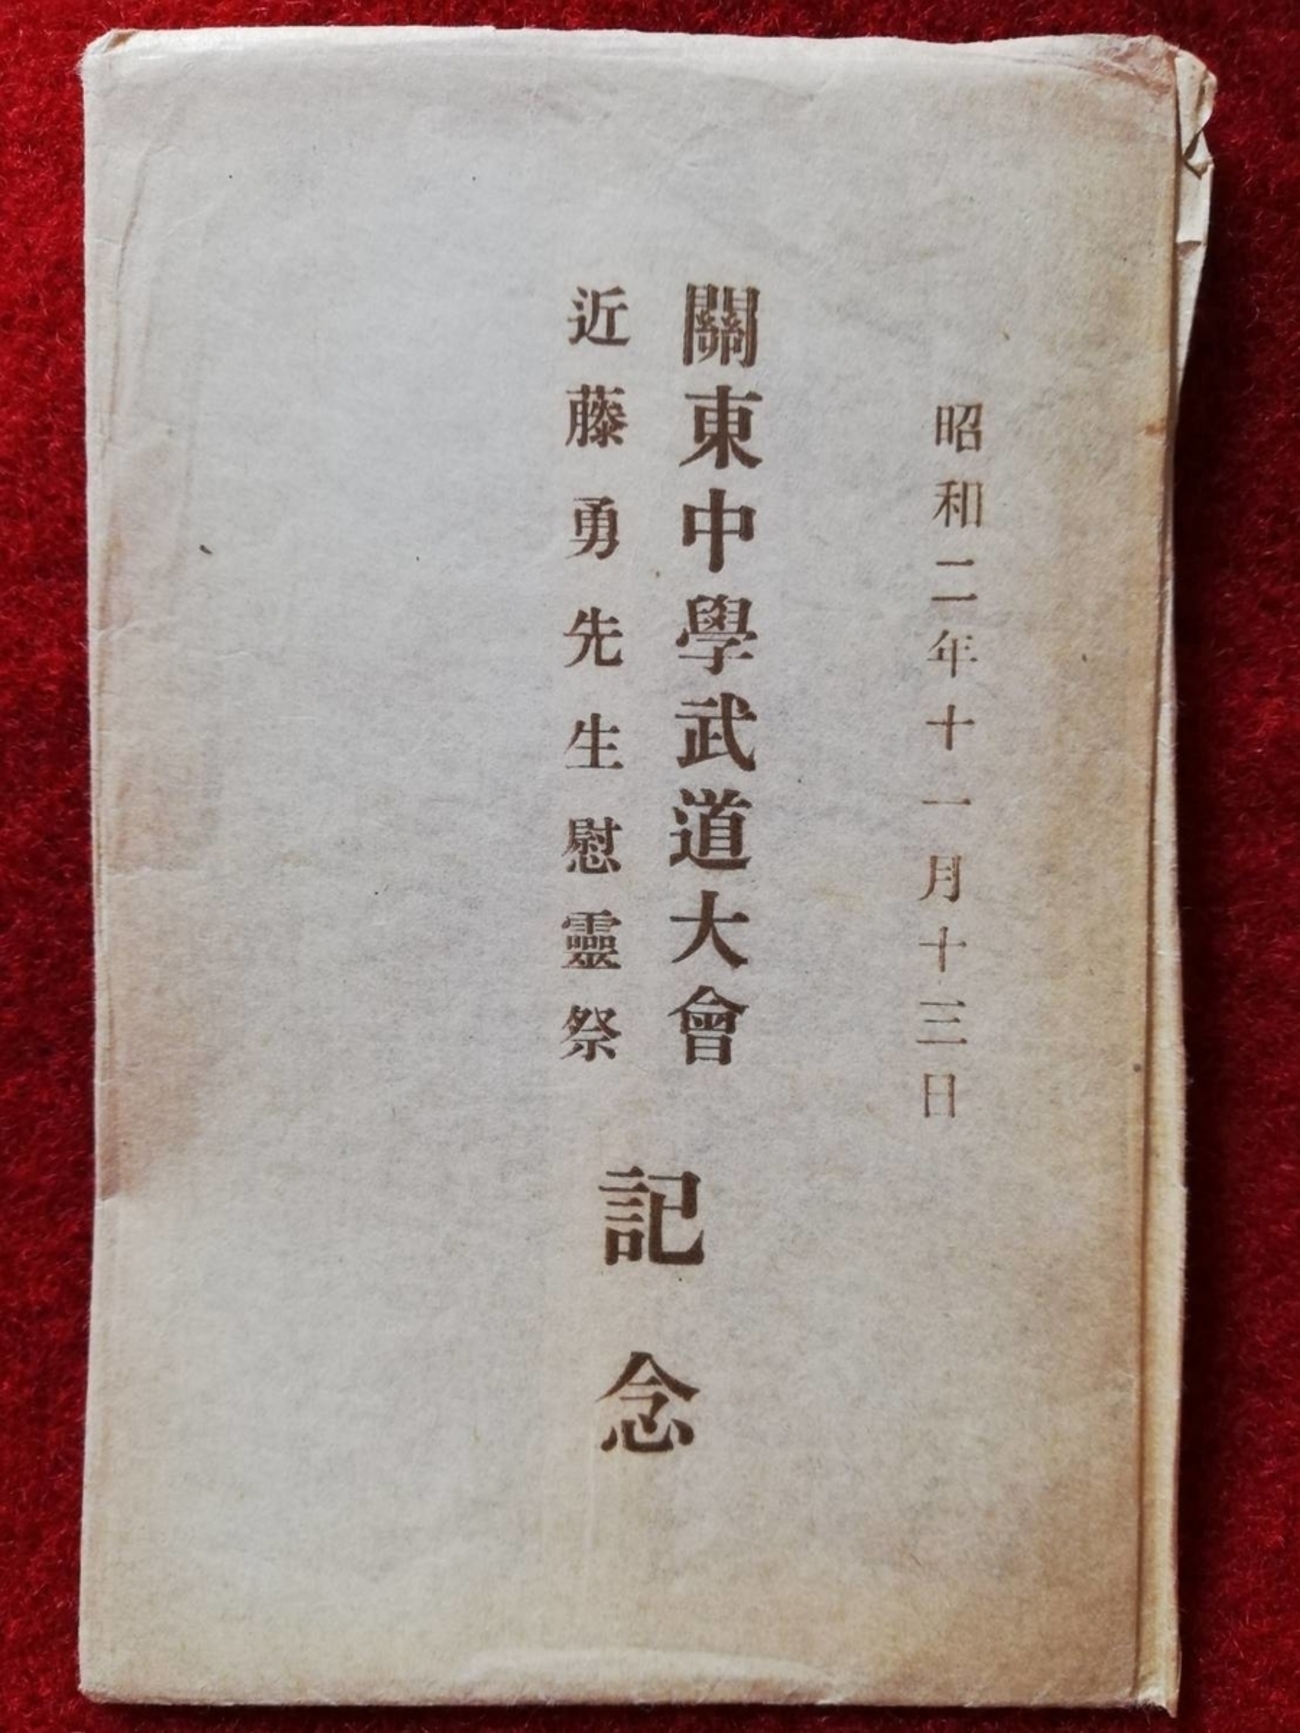 昭和二年十一月十三日
關東中學武道大會
近藤勇先生慰靈祭
記念